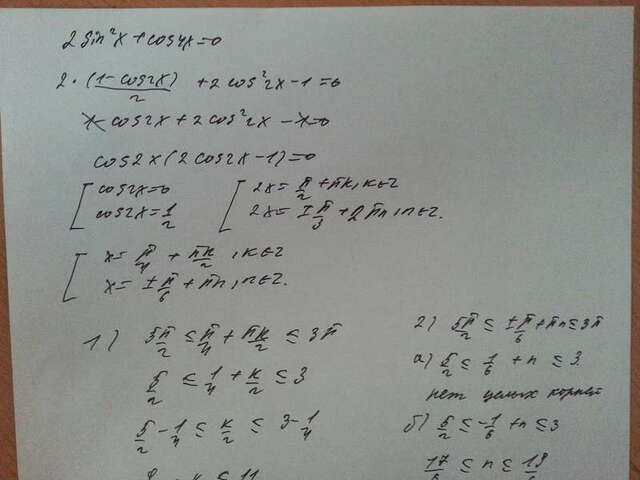 2 sin²x + cos4x = 0
2 · (1 - cos2x)/2 + 2 cos²2x - 1 = 0
1 - cos2x + 2cos²2x - 1 = 0
cos2x (2cos2x - 1) = 0
[ cos2x = 0 [ 2x = π/2 + πk, k ∈ Z
cos2x = 1/2 2x = ± π/3 + 2πn, n ∈ Z.
[ x = π/4 + πk/2, k ∈ Z
x = ± π/6 + πn, n ∈ Z.
1) 5π/2 ≤ π/4 + πk/2 ≤ 3π
5/2 ≤ 1/4 + k/2 ≤ 3
5/2 - 1/4 ≤ k/2 ≤ 3 - 1/4
≤ 11
2) 5π/2 ≤ ± π/6 + πn ≤ 3π
а) 5/2 ≤ 1/6 + n ≤ 3.
нет целых корней
б) 5/2 ≤ -1/6 + n ≤ 3
17/6 ≤ n ≤ 19/6